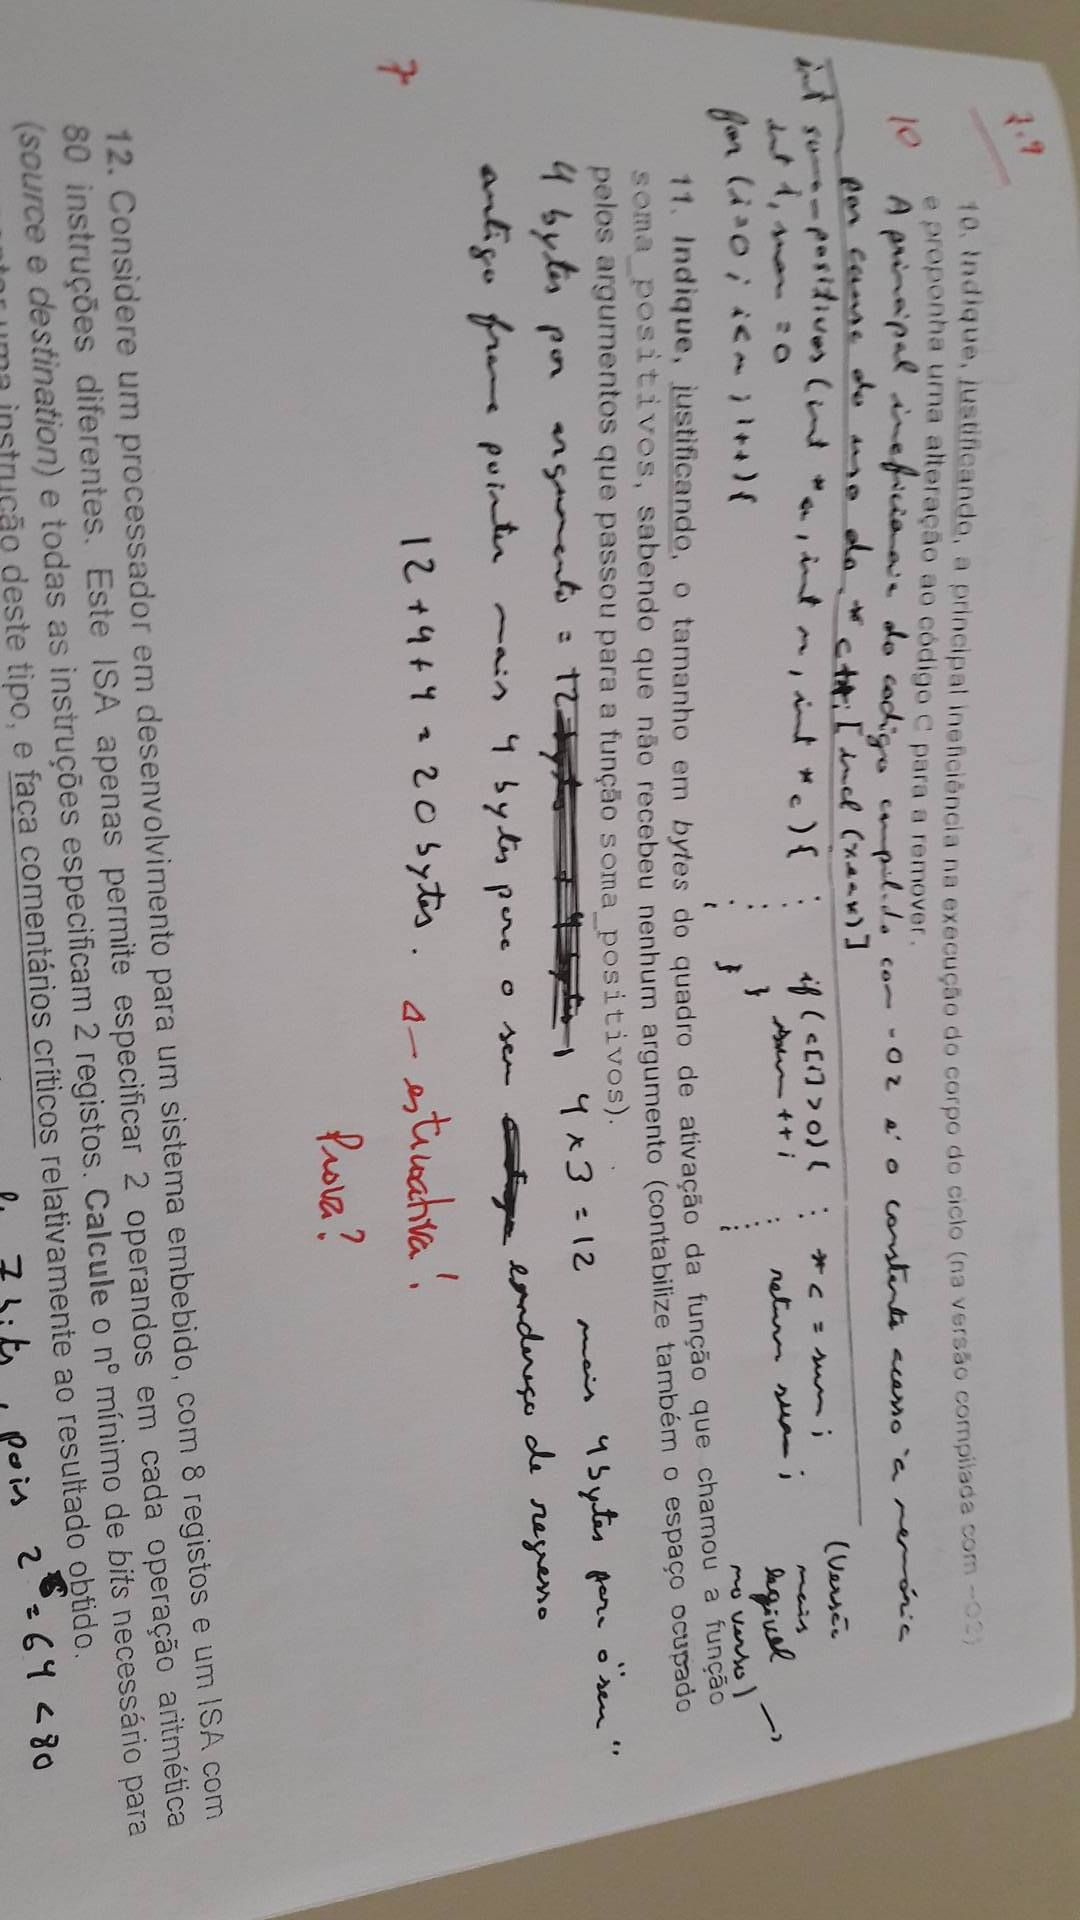 7.9
10. Indique, justificando, a principal ineficiência na execução do corpo do ciclo (na versão compilada com -O2)
e proponha uma alteração ao código C para a remover.
10
A principal ineficiencia do codigo compilado com -O2 é o constante acesso à memória
por causa do uso do *c++; [incl (%eax)]
int soma-positivos (int *a, int n, int *c) {
int i, sum = 0
for (i=0 ; i<n ; i++) {
if (c[i] > 0) {
sum ++ ;
}
}
*c = sum ;
return sum ;
(Versão
mais
legivel
no verso)
11. Indique, justificando, o tamanho em bytes do quadro de ativação da função que chamou a função
soma_positivos, sabendo que não recebeu nenhum argumento (contabilize também o espaço ocupado
pelos argumentos que passou para a função soma_positivos).
4 bytes por argumento = 12 , 4 x 3 = 12 mais 4 bytes para o "seu"
antigo frame pointer mais 4 bytes para o seu endereço de regresso
12 + 4 + 4 = 20 bytes. ← estimativa!
7
Prova?
12. Considere um processador em desenvolvimento para um sistema embebido, com 8 registos e um ISA com
80 instruções diferentes. Este ISA apenas permite especificar 2 operandos em cada operação aritmética
(source e destination) e todas as instruções especificam 2 registos. Calcule o nº mínimo de bits necessário para
uma instrução deste tipo, e faça comentários críticos relativamente ao resultado obtido.
7 bits, pois 2^6 = 64 < 80